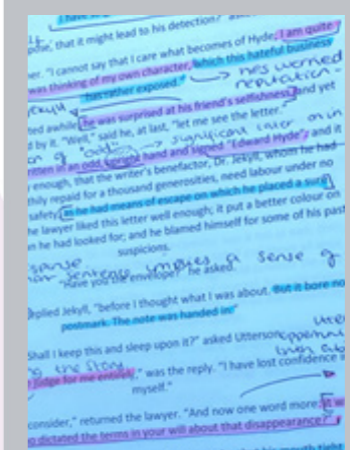 pose, that it might lead to his detection?"
her. "I cannot say that I care what becomes of Hyde; I am quite
was thinking of my own character, which this hateful business
has rather exposed."
he's worried
reputation
he was surprised at his friend's selfishness, and yet
d by it. "Well," said he, at last, "let me see the letter."
written in an odd, upright hand and signed "Edward Hyde": and it
enough, that the writer's benefactor, Dr. Jekyll, whom he had
thily repaid for a thousand generosities, need labour under no
safety, as he had means of escape on which he placed a sure
he lawyer liked this letter well enough; it put a better colour on
an he had looked for; and he blamed himself for some of his past
suspicions.
sentence implies a sense of
"Have you the envelope?" he asked.
replied Jekyll, "before I thought what I was about. But it bore no
postmark. The note was handed in."
Shall I keep this and sleep upon it?" asked Utterson
judge for me entirely," was the reply. "I have lost confidence i
myself."
consider," returned the lawyer. "And now one word more: it w
o dictated the terms in your will about that disappearance?"